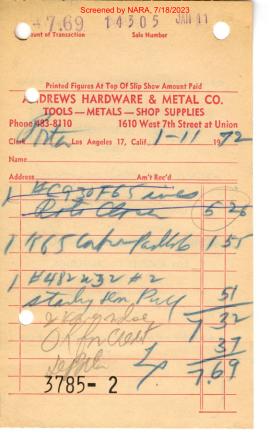 Screened by NARA, 7/18/2023
7.69 14305 JAN 11
Amount of Transaction Sale Number
Printed Figures At Top Of Slip Show Amount Paid
ANDREWS HARDWARE & METAL CO.
TOOLS — METALS — SHOP SUPPLIES
Phone 483-8110 1610 West 7th Street at Union
Clerk Los Angeles 17, Calif. 1-11 1972
Name
Address Am't Rec'd
1 # 6930F65
5 26
1 K65 1 55
1 # 482 x 32 # 2
51
7 32
OK for Credit 37
7.69
3785- 2